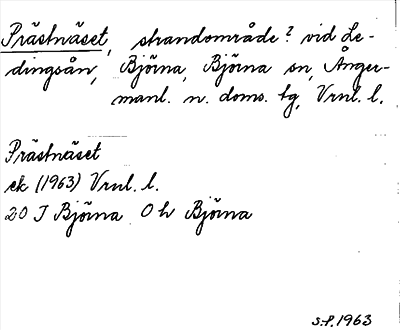 Prästnäset, strandområde? vid Le-
dingsån, Björna, Björna sn, Ånger-
manl. n. doms. tg, Vrnl. l.
Prästnäset
ek (1963) Vrnl. l.
20 I Björna Oh Björna
S.P. 1963